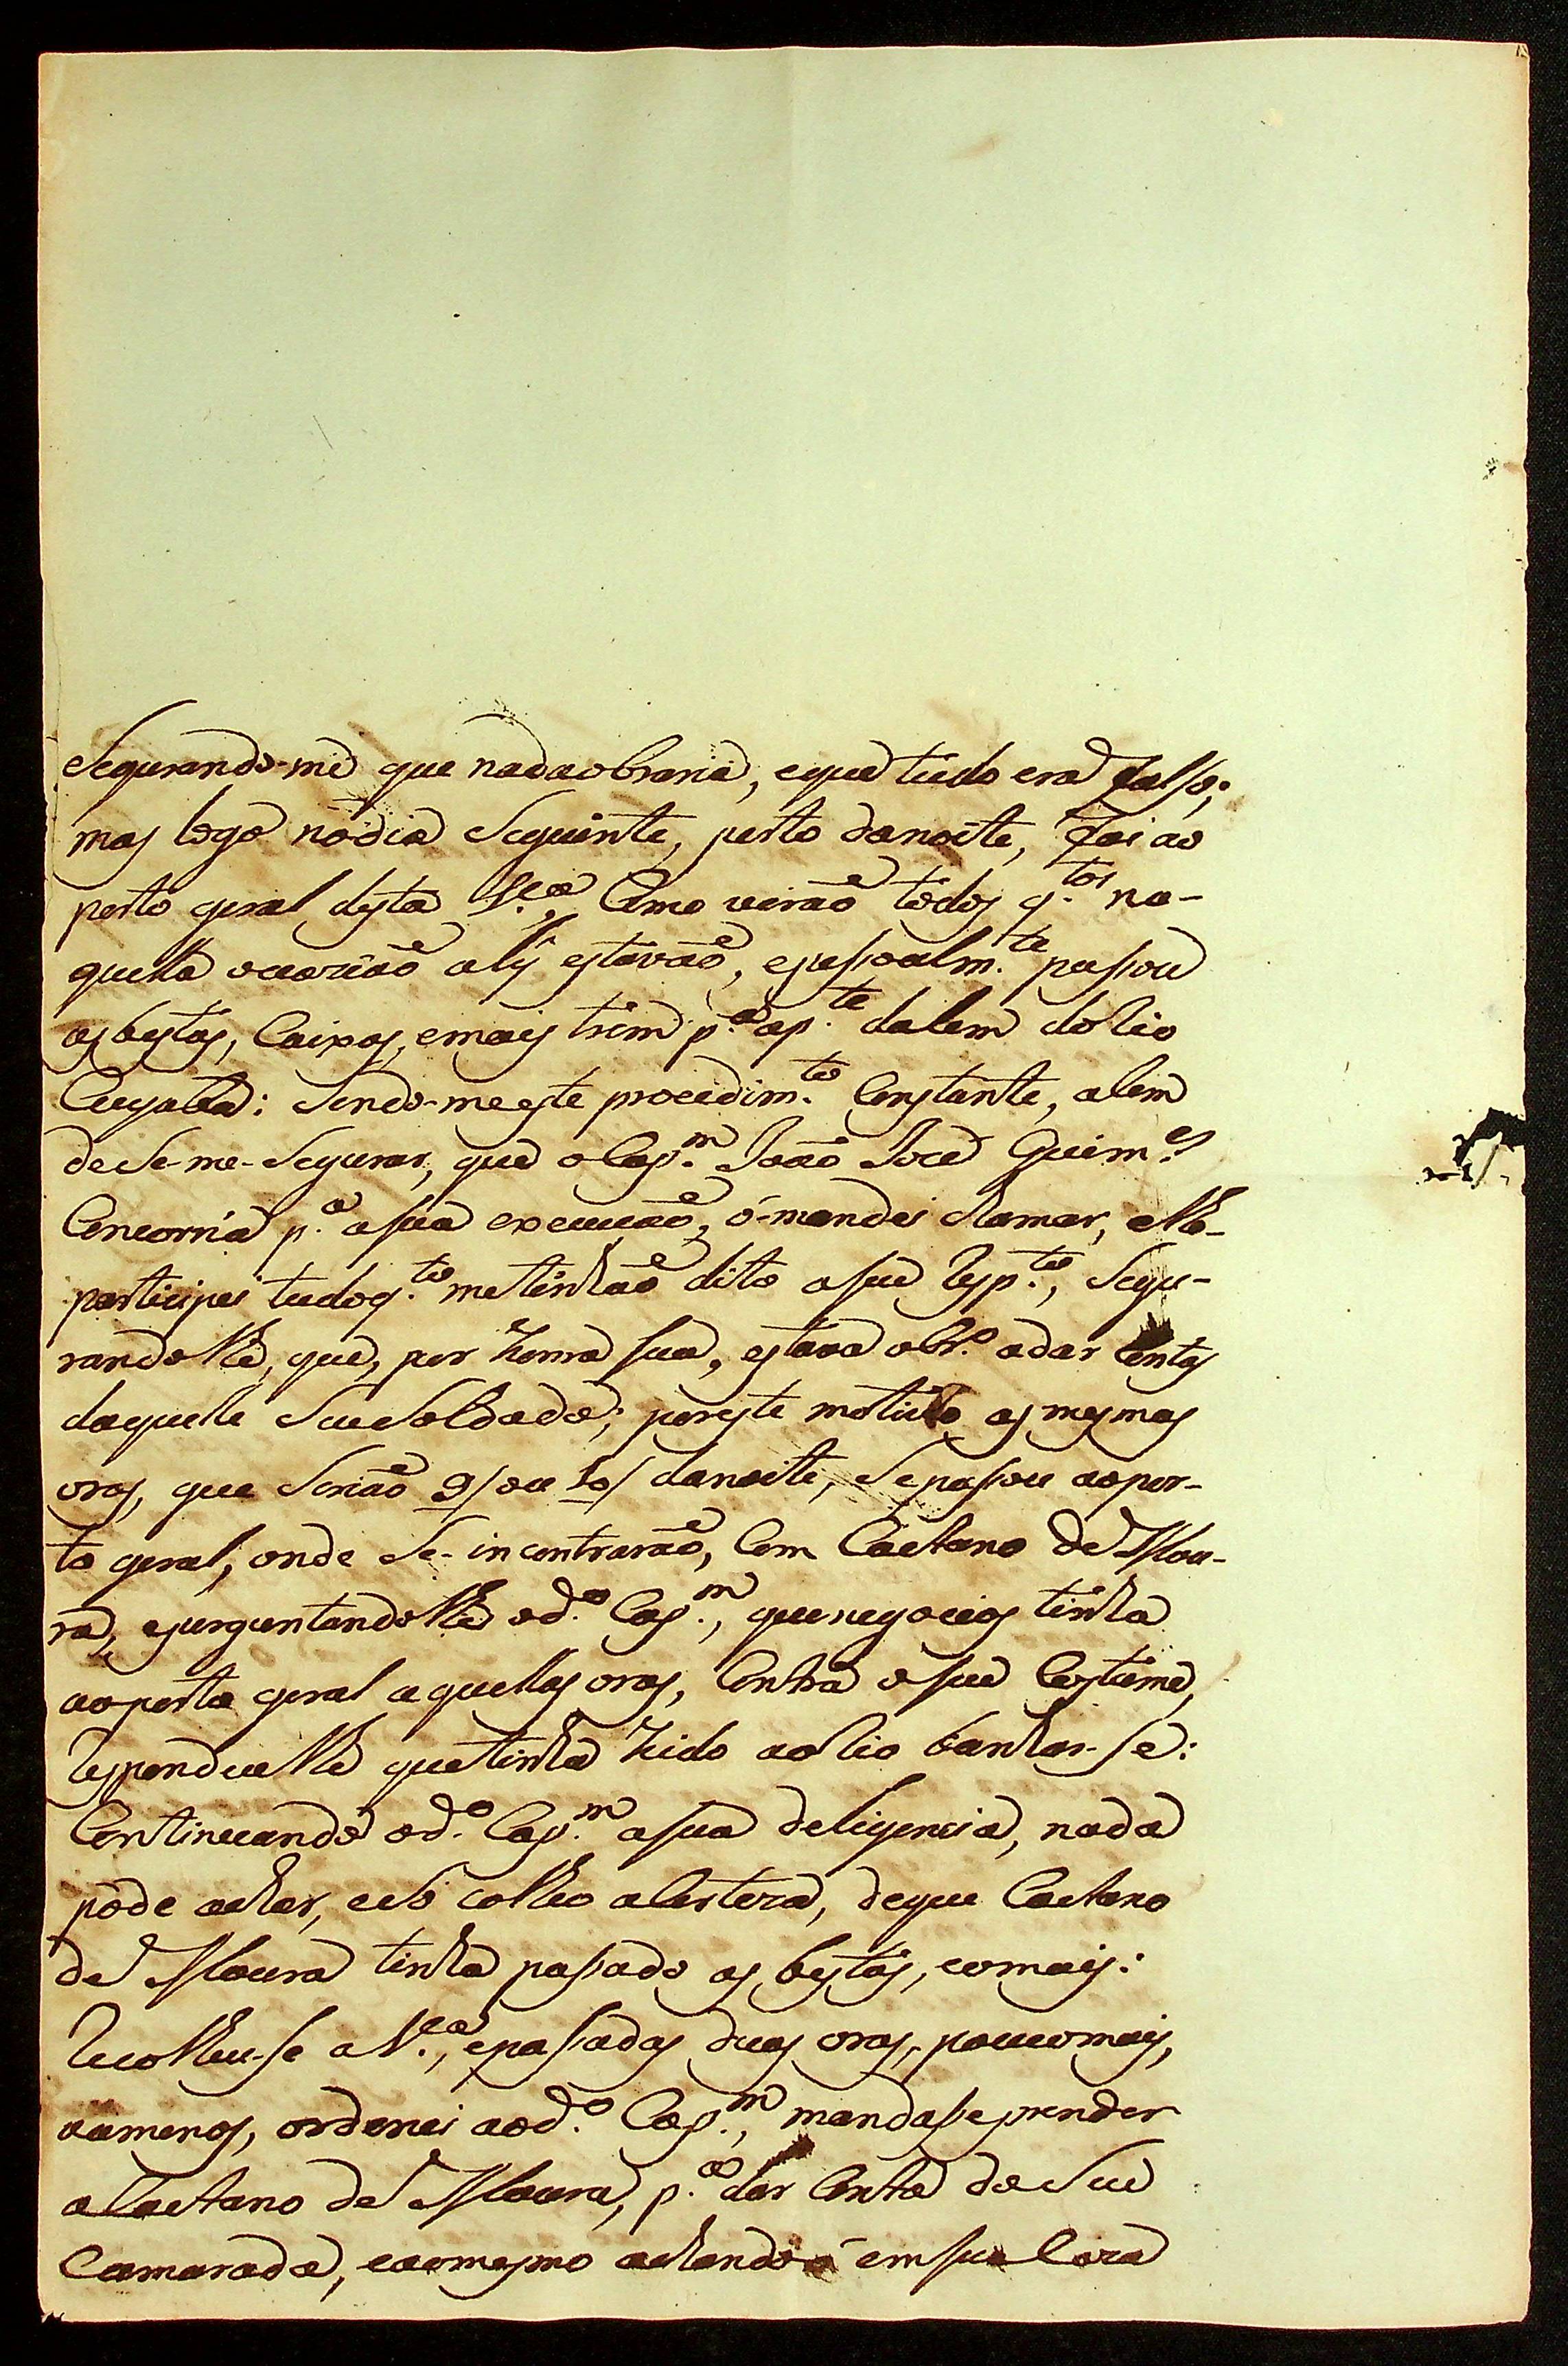 Segurando-me que nada obraria, eque tudo era falso;
mas logo nodia Seguinte, perto danoite, foi ao
porto geral desta V.ª, Como virão todos q.tos na-
quella ocazião aly estavão, epessoalm.te passou
as bestas, Caixas, emais trem p.ª ap.te dalem do Rio
Cuyaba: Sendo-me este procedim.to Constante, alem
deSe-me-Segurar, que oCap.m João Joze Guim.es
Concorria p.ª asua execução, ó-mandei chamar, elhe-
participei tudo q.to metinhão dito aSeu resp.to, Segu-
randolhe, que, por honra sua, estava obr.º adar Contas
daquelle SeuSoldado; poreste motivo as mesmas
oras, que Serião 9/ou 10/ danoite, Sepassou aopor-
to geral, onde Se-incontrarão, Com Caetano de Mou-
ra, eperguntandolhe od.º Cap.m, quenegocios tinha
aoporto geral aquellas oras, Contra oSeu Custume,
respondeulhe quetinha hido aoRio banhar-se:
Continuando od.º Cap.m aSua deligencia, nada
pôde achar, eSó colheo aCerteza, deque Caetano
de Moura tinha passado as bestas, eomais:
recolheu-se aV.ª, epassadas duas oras, poucomais,
oumenos, ordenei aod.º Cap.m, mandasseprender
aCaetano de Moura, p.ª dar Conta doSeu
Camarada, eaomesmo achando-ó emsua Caza